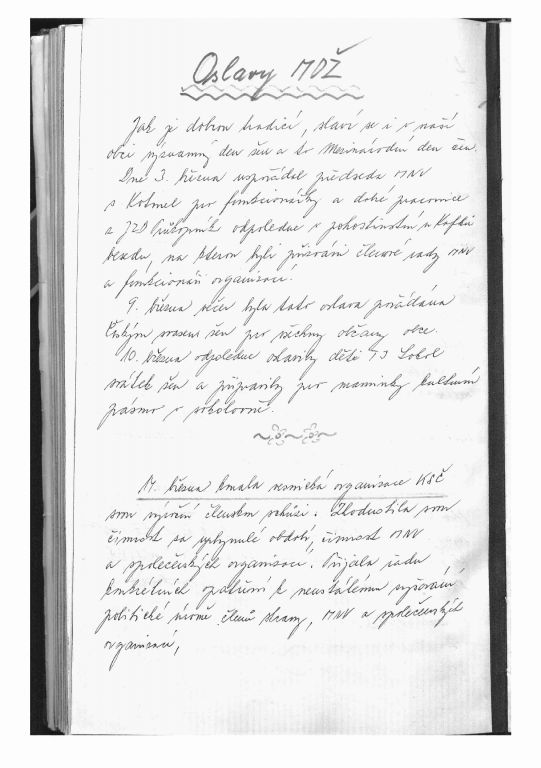 Oslavy MDŽ
Jak je dobrou tradicí, slaví se i v naší
obci významný den žen a to Mezinárodní den žen.
Dne 3. března uspořádal předseda MNV
s Kotmel pro funkcionářky a dobré pracovnice
z JZD Průkopník odpoledne v pohostinství u Kafků
besedu, na kterou byli přizváni členové rady MNV
a funkcionáři organizací.
9. března večer byla tato oslava pořádána
Českým svazem žen pro všechny občany obce.
10. března odpoledne oslavily děti TJ Sokol
svátek žen a připravily pro maminky kulturní
pásmo v sokolovně.
17. března konala vesnická organizace KSČ
svou výroční členskou schůzi. Zhodnotila svou
činnost za uplynulé období, činnost MNV
a společenských organizací. Přijala řadu
konkrétních opatření k neustálému zvyšování
politické úrovně členů strany, MNV a společenských
organizací,